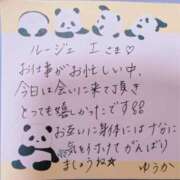 ルージュ Iさま♡
お仕事がお忙しい中、
今日は会いに来て頂き
とっても嬉しかったです!!
お互いに身体には十分に
気を付けてがんばり
ましょうね☆
ゆうか